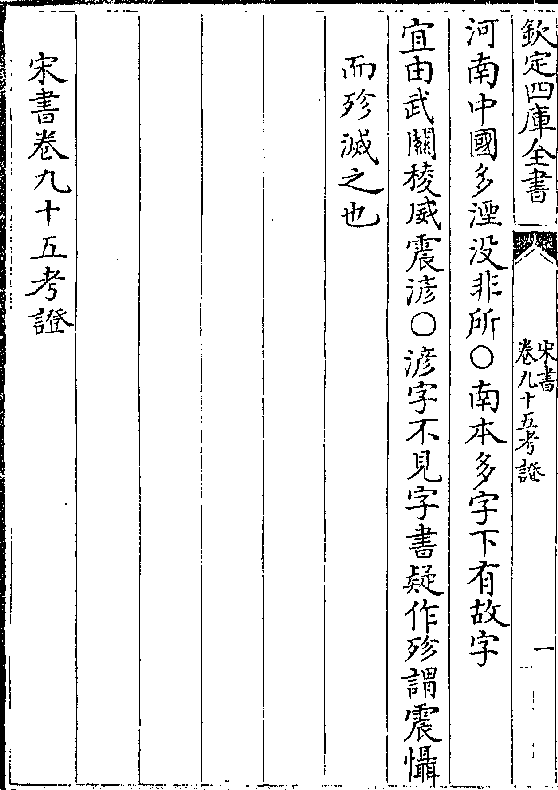 欽定四庫全書
宋書
卷九十五考證
一
河南中國多湮没非所〇南本多字下有故字
宜由武關稜威震〇字不見字書疑作殄謂震懾
而殄滅之也
宋書卷九十五考證